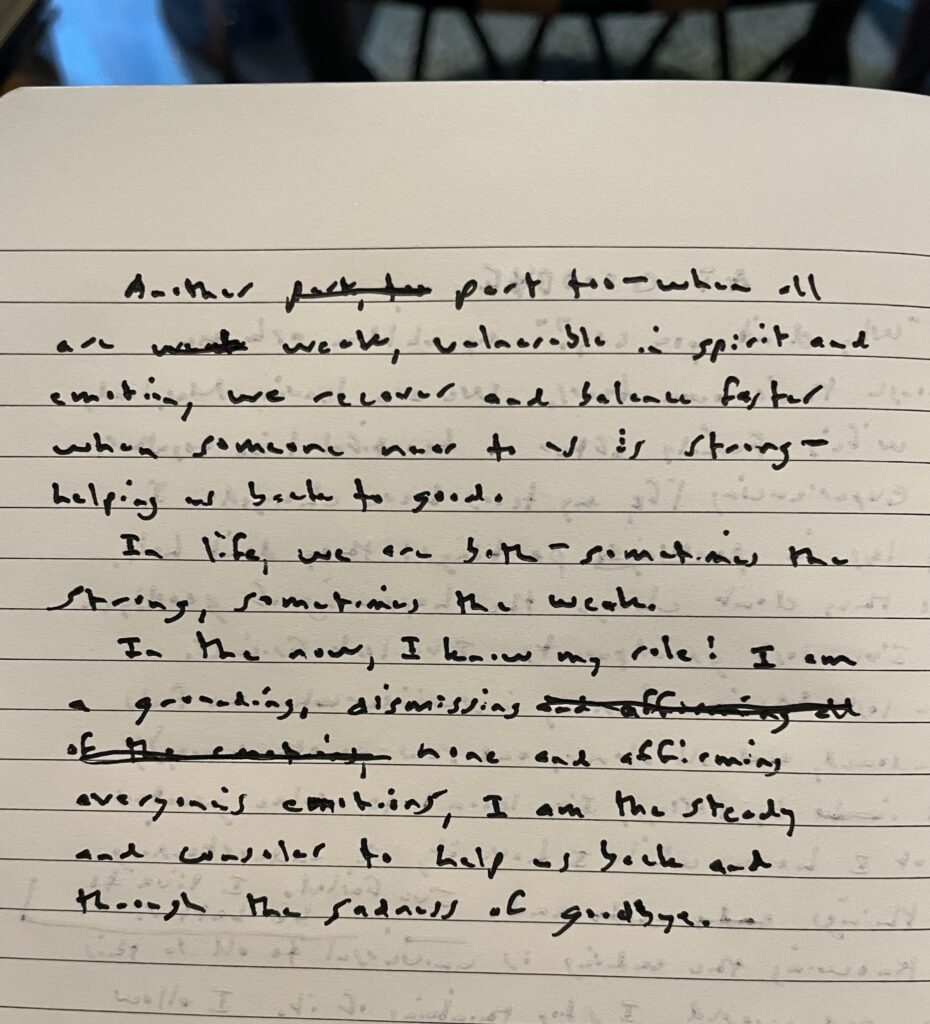 Another part, too part too—when all
are weak weak, vulnerable in spirit and
emotion, we recover and balance faster
when someone near to us is strong—
helping us back to good.
In life, we are both—sometimes the
strong, sometimes the weak.
In the now, I know my role! I am
a grounding, dismissing and affirming all
of the emotions, none and affirming
everyone's emotions, I am the steady
and consoler to help us back and
through the sadness of goodbye.